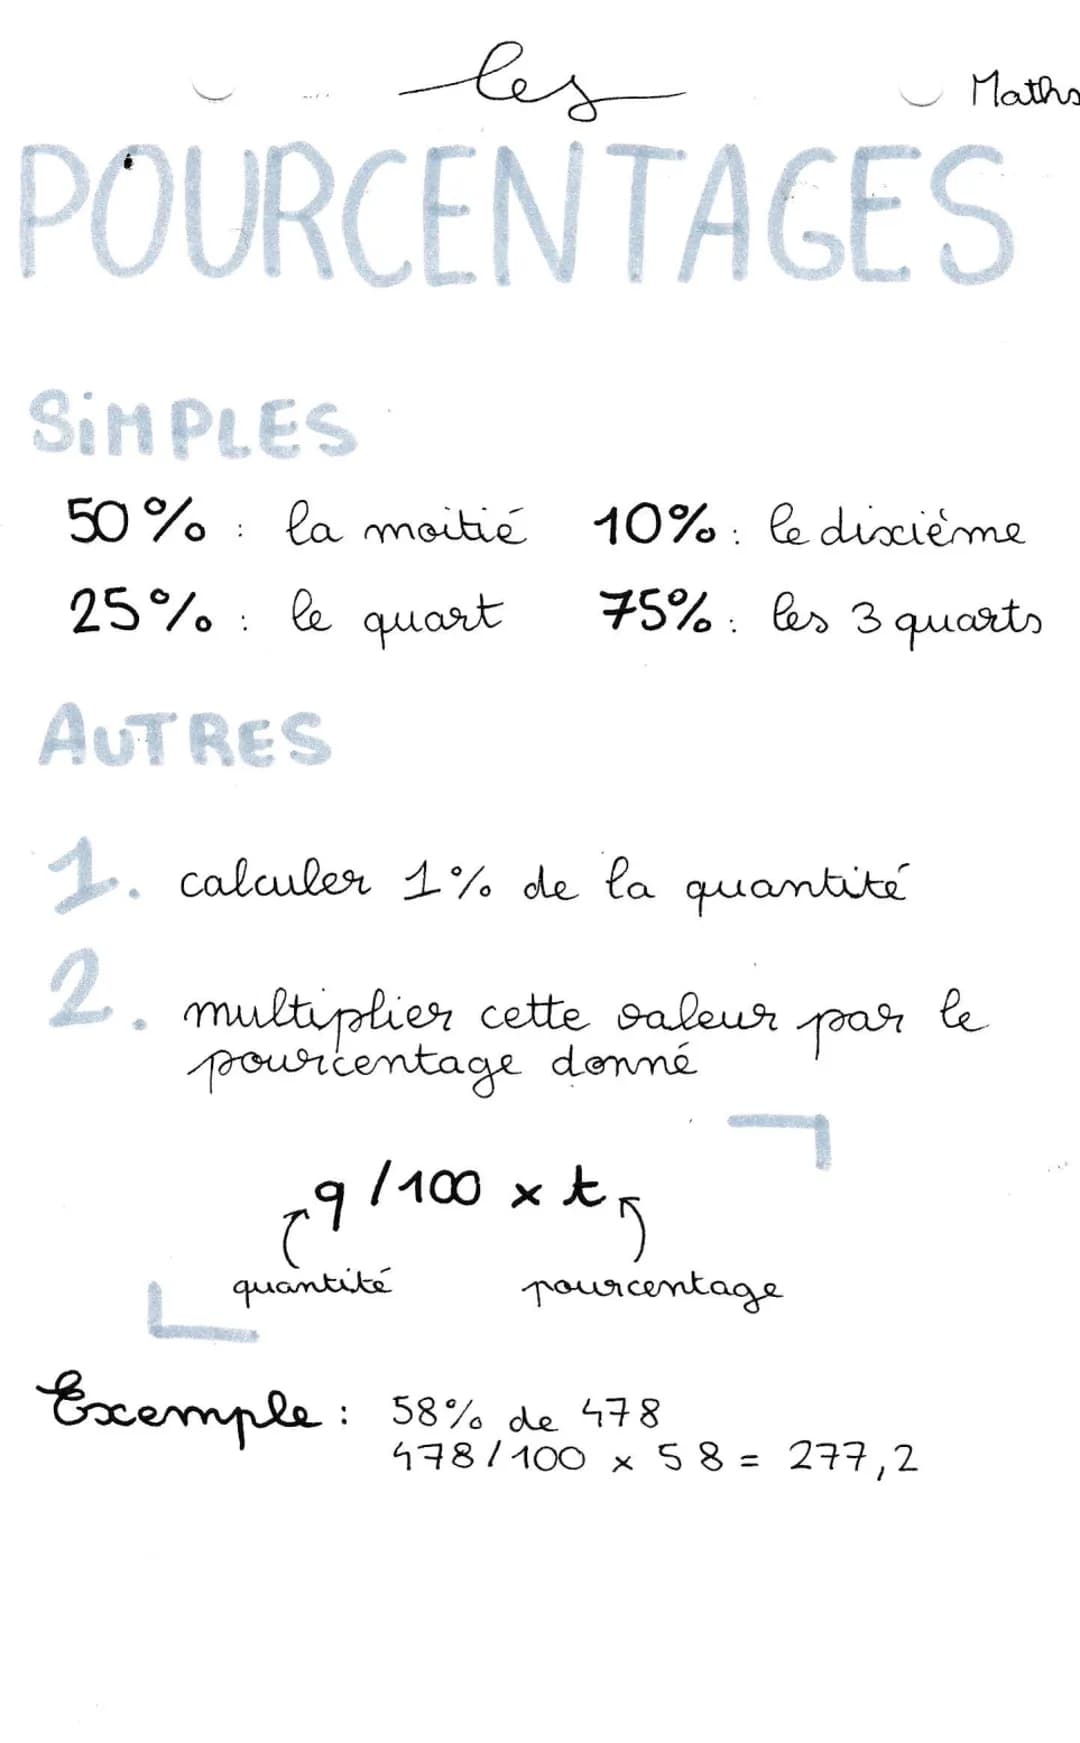 les
Maths
POURCENTAGES
SiMPLES
50% : la moitié 10% : le dixième
25% : le quart 75% : les 3 quarts
AUTRES
1. calculer 1% de la quantité
2. multiplier cette valeur par le
pourcentage donné
q/100 x t
quantité pourcentage
Exemple : 58% de 478
478/100 x 58 = 277,2